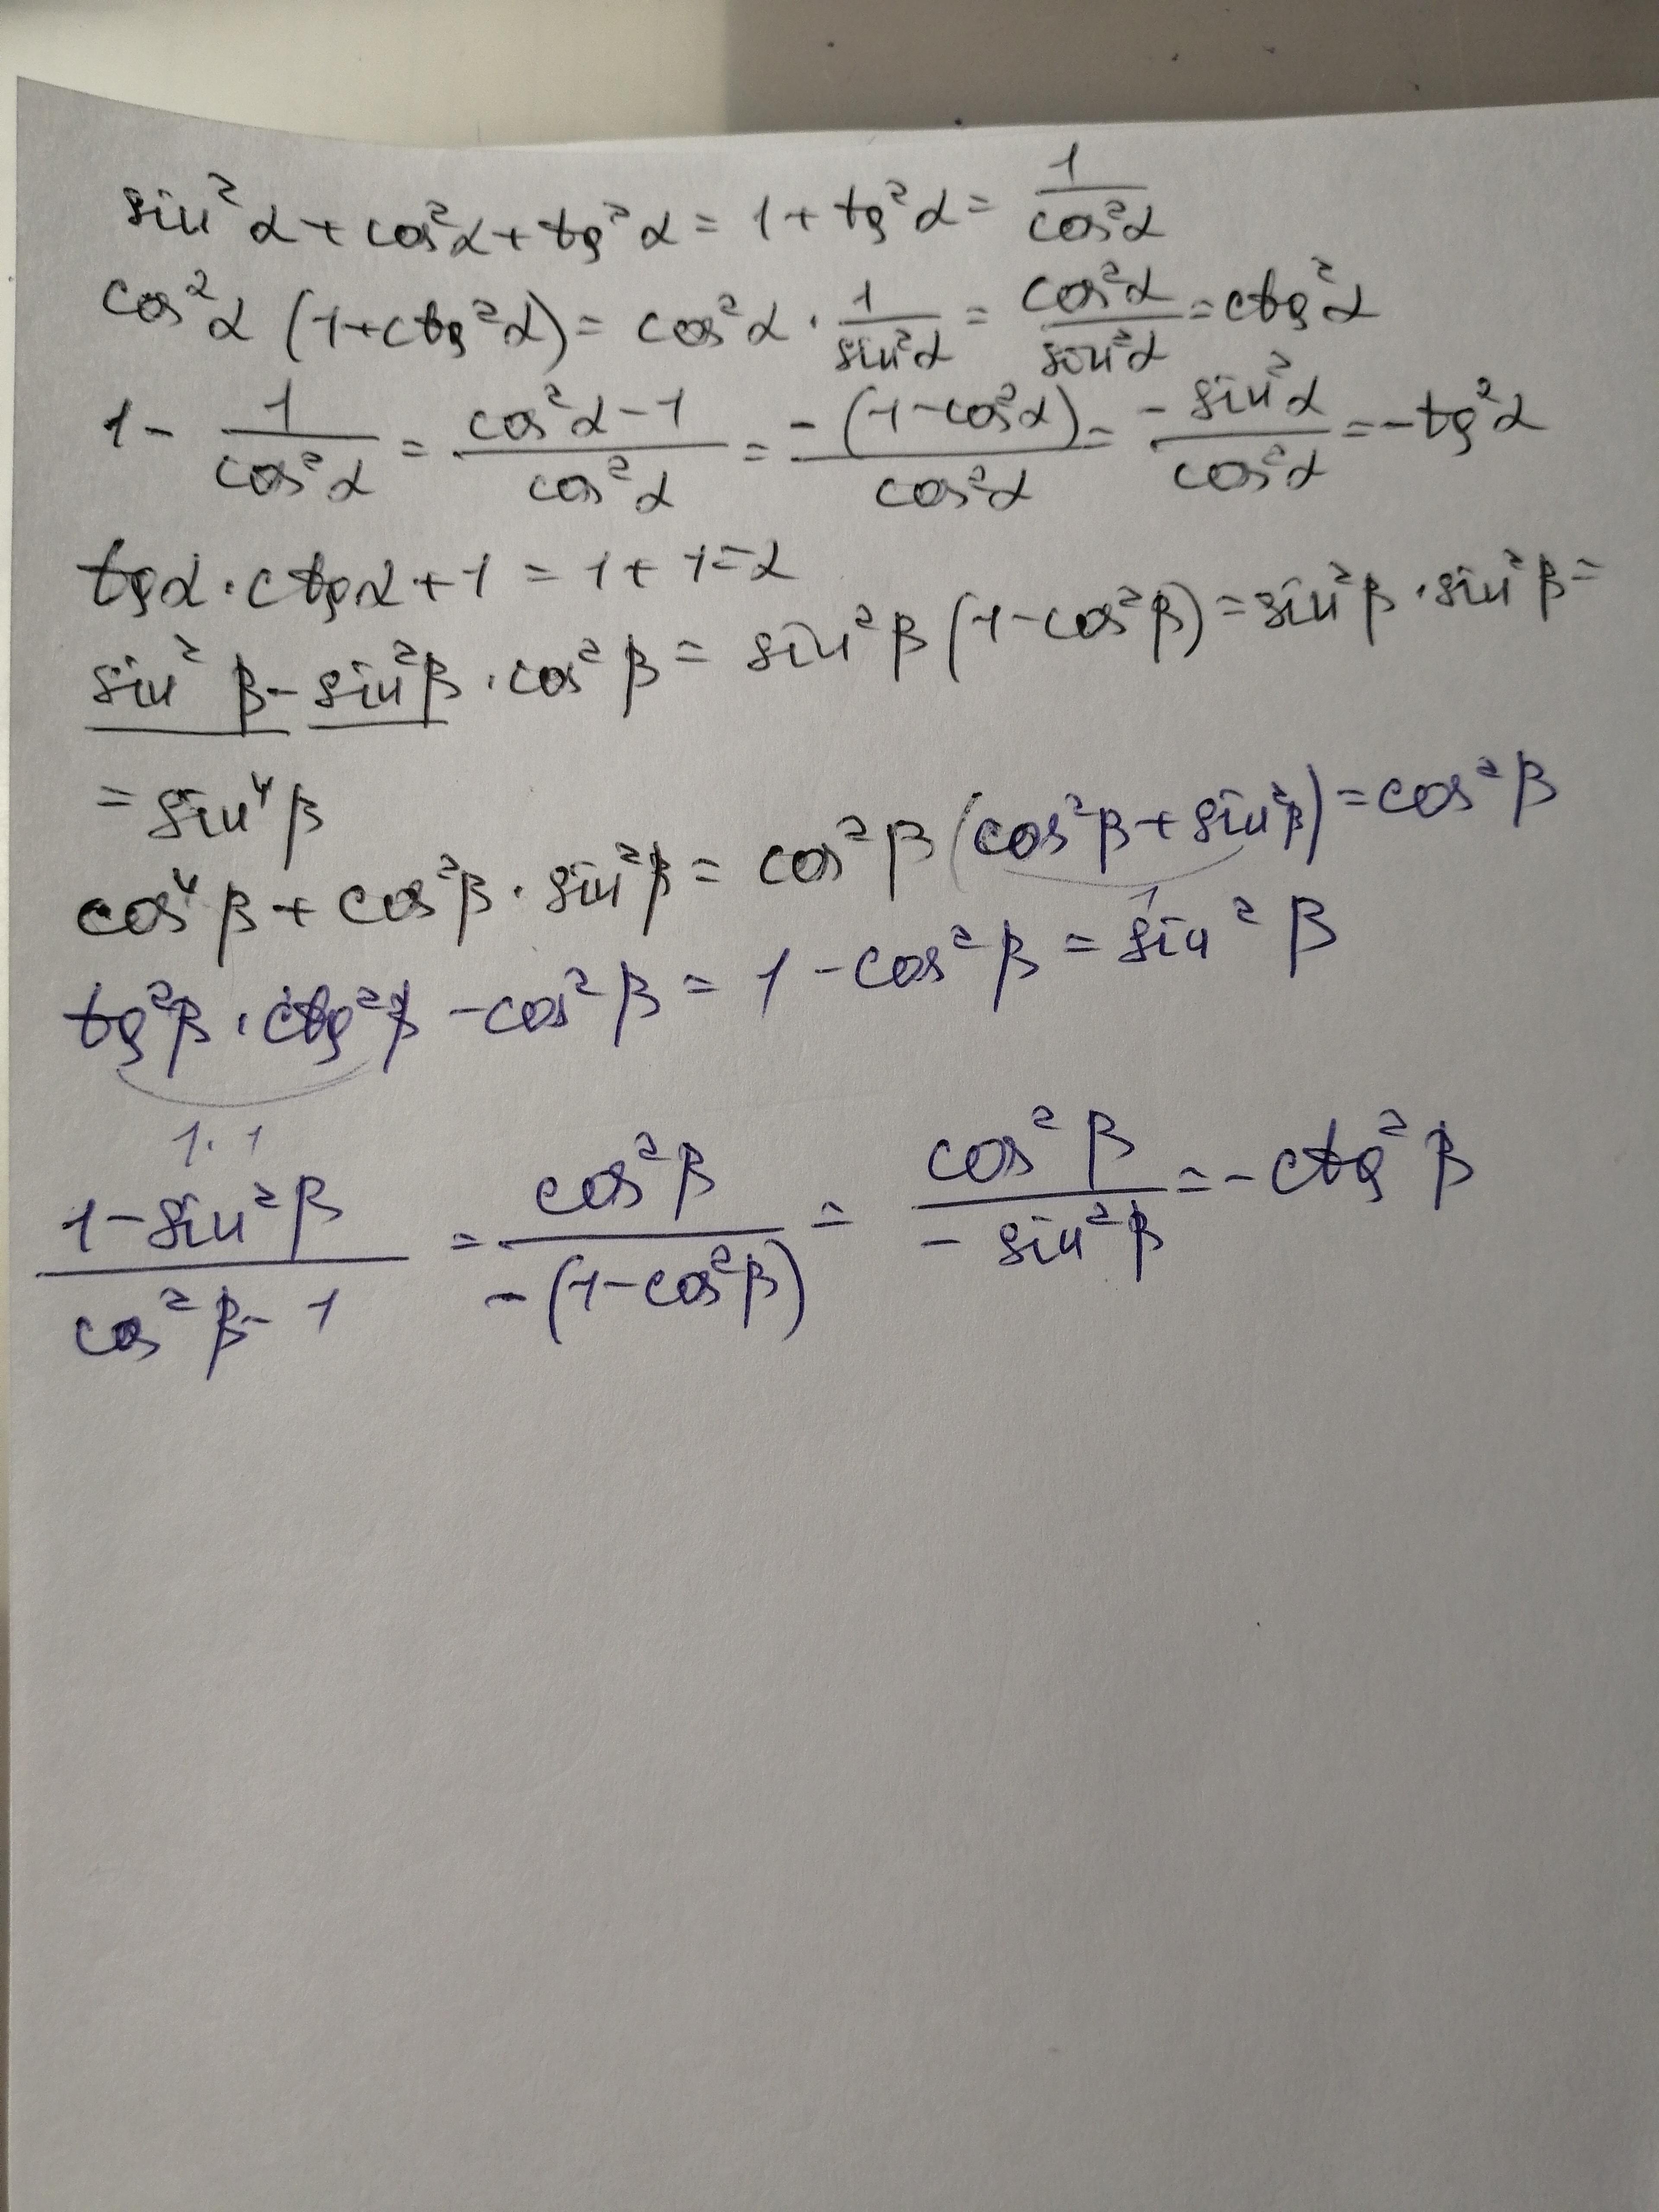 sin²α + cos²α + tg²α = 1 + tg²α = 1/cos²α
cos²α (1 + ctg²α) = cos²α · 1/sin²α = cos²α/sin²α = ctg²α
1 - 1/cos²α = (cos²α - 1)/cos²α = -(1 - cos²α)/cos²α = -sin²α/cos²α = -tg²α
tgα · ctgα + 1 = 1 + 1 = 2
sin²β - sin²β · cos²β = sin²β (1 - cos²β) = sin²β · sin²β =
= sin⁴β
cos⁴β + cos²β · sin²β = cos²β (cos²β + sin²β) = cos²β
1
tg²β · ctg²β - cos²β = 1 - cos²β = sin²β
1 · 1
(1 - sin²β)/(cos²β - 1) = cos²β/-(1 - cos²β) = cos²β/-sin²β = -ctg²β